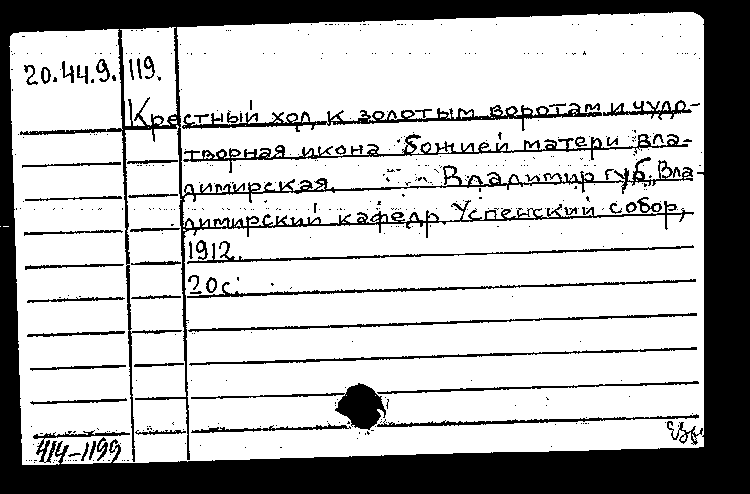 20.44.9. 119.
Крестный ход к золотым воротам и чудо-
творная икона Божией матери Вла-
димирская. - Владимир губ., Вла-
димирский кафедр. Успенский собор,
1912.
20с.
414-1199